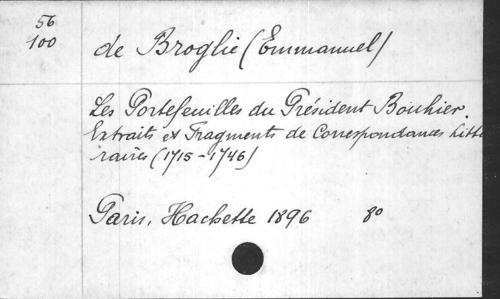 56
100
de Broglie (Emmanuel)
Les Portefeuilles du Président Bouhier.
Extraits et Fragments de Correspondances litté
raires (1715-1746)
Paris, Hachette 1896 8o